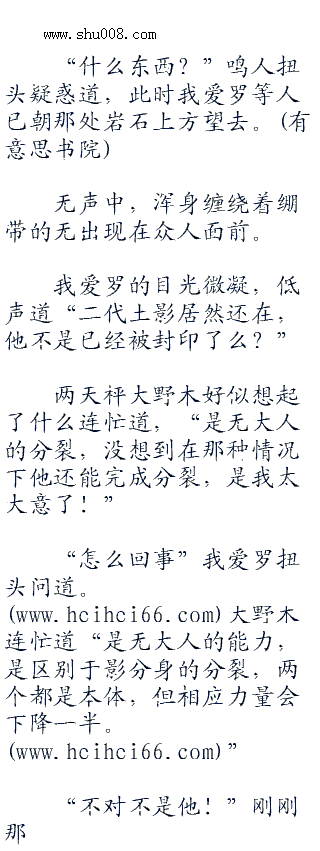 www.shu008.com
“什么东西？”鸣人扭
头疑惑道，此时我爱罗等人
已朝那处岩石上方望去。(有
意思书院)
无声中，浑身缠绕着绷
带的无出现在众人面前。
我爱罗的目光微凝，低
声道“二代土影居然还在，
他不是已经被封印了么？”
两天秤大野木好似想起
了什么连忙道，“是无大人
的分裂，没想到在那种情况
下他还能完成分裂，是我太
大意了！”
“怎么回事”我爱罗扭
头问道。
(www.hcihci66.com)大野木
连忙道“是无大人的能力，
是区别于影分身的分裂，两
个都是本体，但相应力量会
下降一半。
(www.hcihci66.com)”
“不对不是他！”刚刚
那